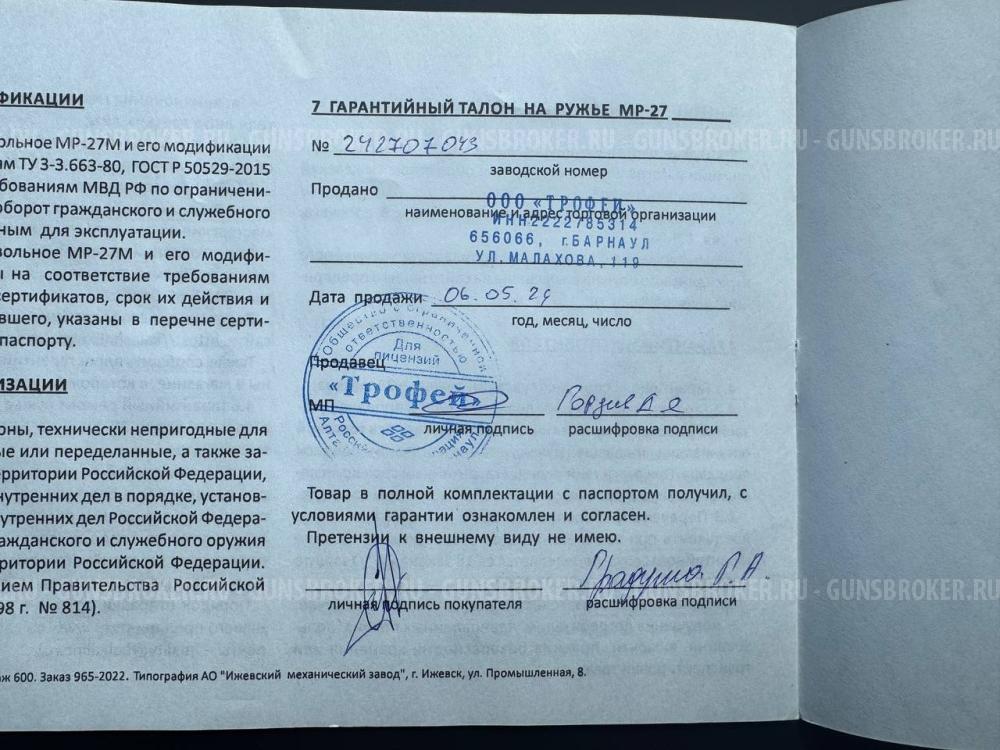 ФИКАЦИИ
ольное МР-27М и его модификации
ям ТУ 3-3.663-80, ГОСТ Р 50529-2015
ебованиям МВД РФ по ограничени-
оборот гражданского и служебного
ным для эксплуатации.
вольное МР-27М и его модифи-
ы на соответствие требованиям
сертификатов, срок их действия и
вшего, указаны в перечне серти-
паспорту.
ИЗАЦИИ
оны, технически непригодные для
ые или переделанные, а также за-
ерритории Российской Федерации,
нутренних дел в порядке, установ-
утренних дел Российской Федера-
ажданского и служебного оружия
рритории Российской Федерации.
ием Правительства Российской
98 г. № 814).
7 ГАРАНТИЙНЫЙ ТАЛОН НА РУЖЬЕ МР-27
№ 242707043
заводской номер
Продано
ООО «ТРОФЕЙ»
наименование и адрес торговой организации
ИНН2222785314
656066, г.БАРНАУЛ
УЛ.МАЛАХОВА,119
Дата продажи 06.05.24
год, месяц, число
Общество с ограниченной
ответственностью
Для
лицензий
Продавец
«Трофей»
МП
личная подпись расшифровка подписи
Товар в полной комплектации с паспортом получил, с
условиями гарантии ознакомлен и согласен.
Претензии к внешнему виду не имею.
личная подпись покупателя расшифровка подписи
аж 600. Заказ 965-2022. Типография АО "Ижевский механический завод", г. Ижевск, ул. Промышленная, 8.
GUNSBROKER.RU - GUNSBROKER.RU - GUNSBROKER.RU - GUNSBROKER.RU
GUNSBROKER.RU - GUNSBROKER.RU - GUNSBROKER.RU - GUNSBROKER.RU